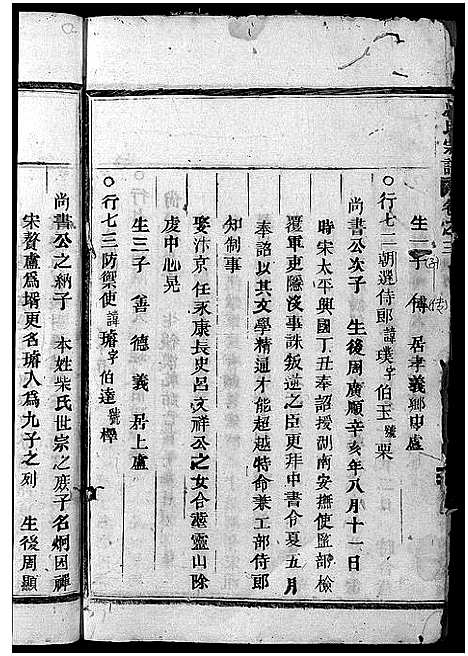 生二子 傅 居孝義鄉中盧
○行七二朝選侍郎諱璞字伯玉號栗
尚書公次子 生後周廣順辛亥年八月十一日
時宋太平興國丁丑奉詔授湖南安撫使監部檢
覆軍吏隱沒事誅叛逆之臣更拜中書令夏五月
奉詔以其文學精通才能超越特命兼工部侍郎
知制事
娶汴京 任永康長史呂文祥公之女合葬靈山除
虔中心晃
生三子 善 德 義 居上盧
○行七三防禦使諱璿字伯達號樫
尚書公之納子 本姓柴氏世宗之庶子名炯因禪
宋贅盧爲壻更名璿人爲九子之列 生後周顯